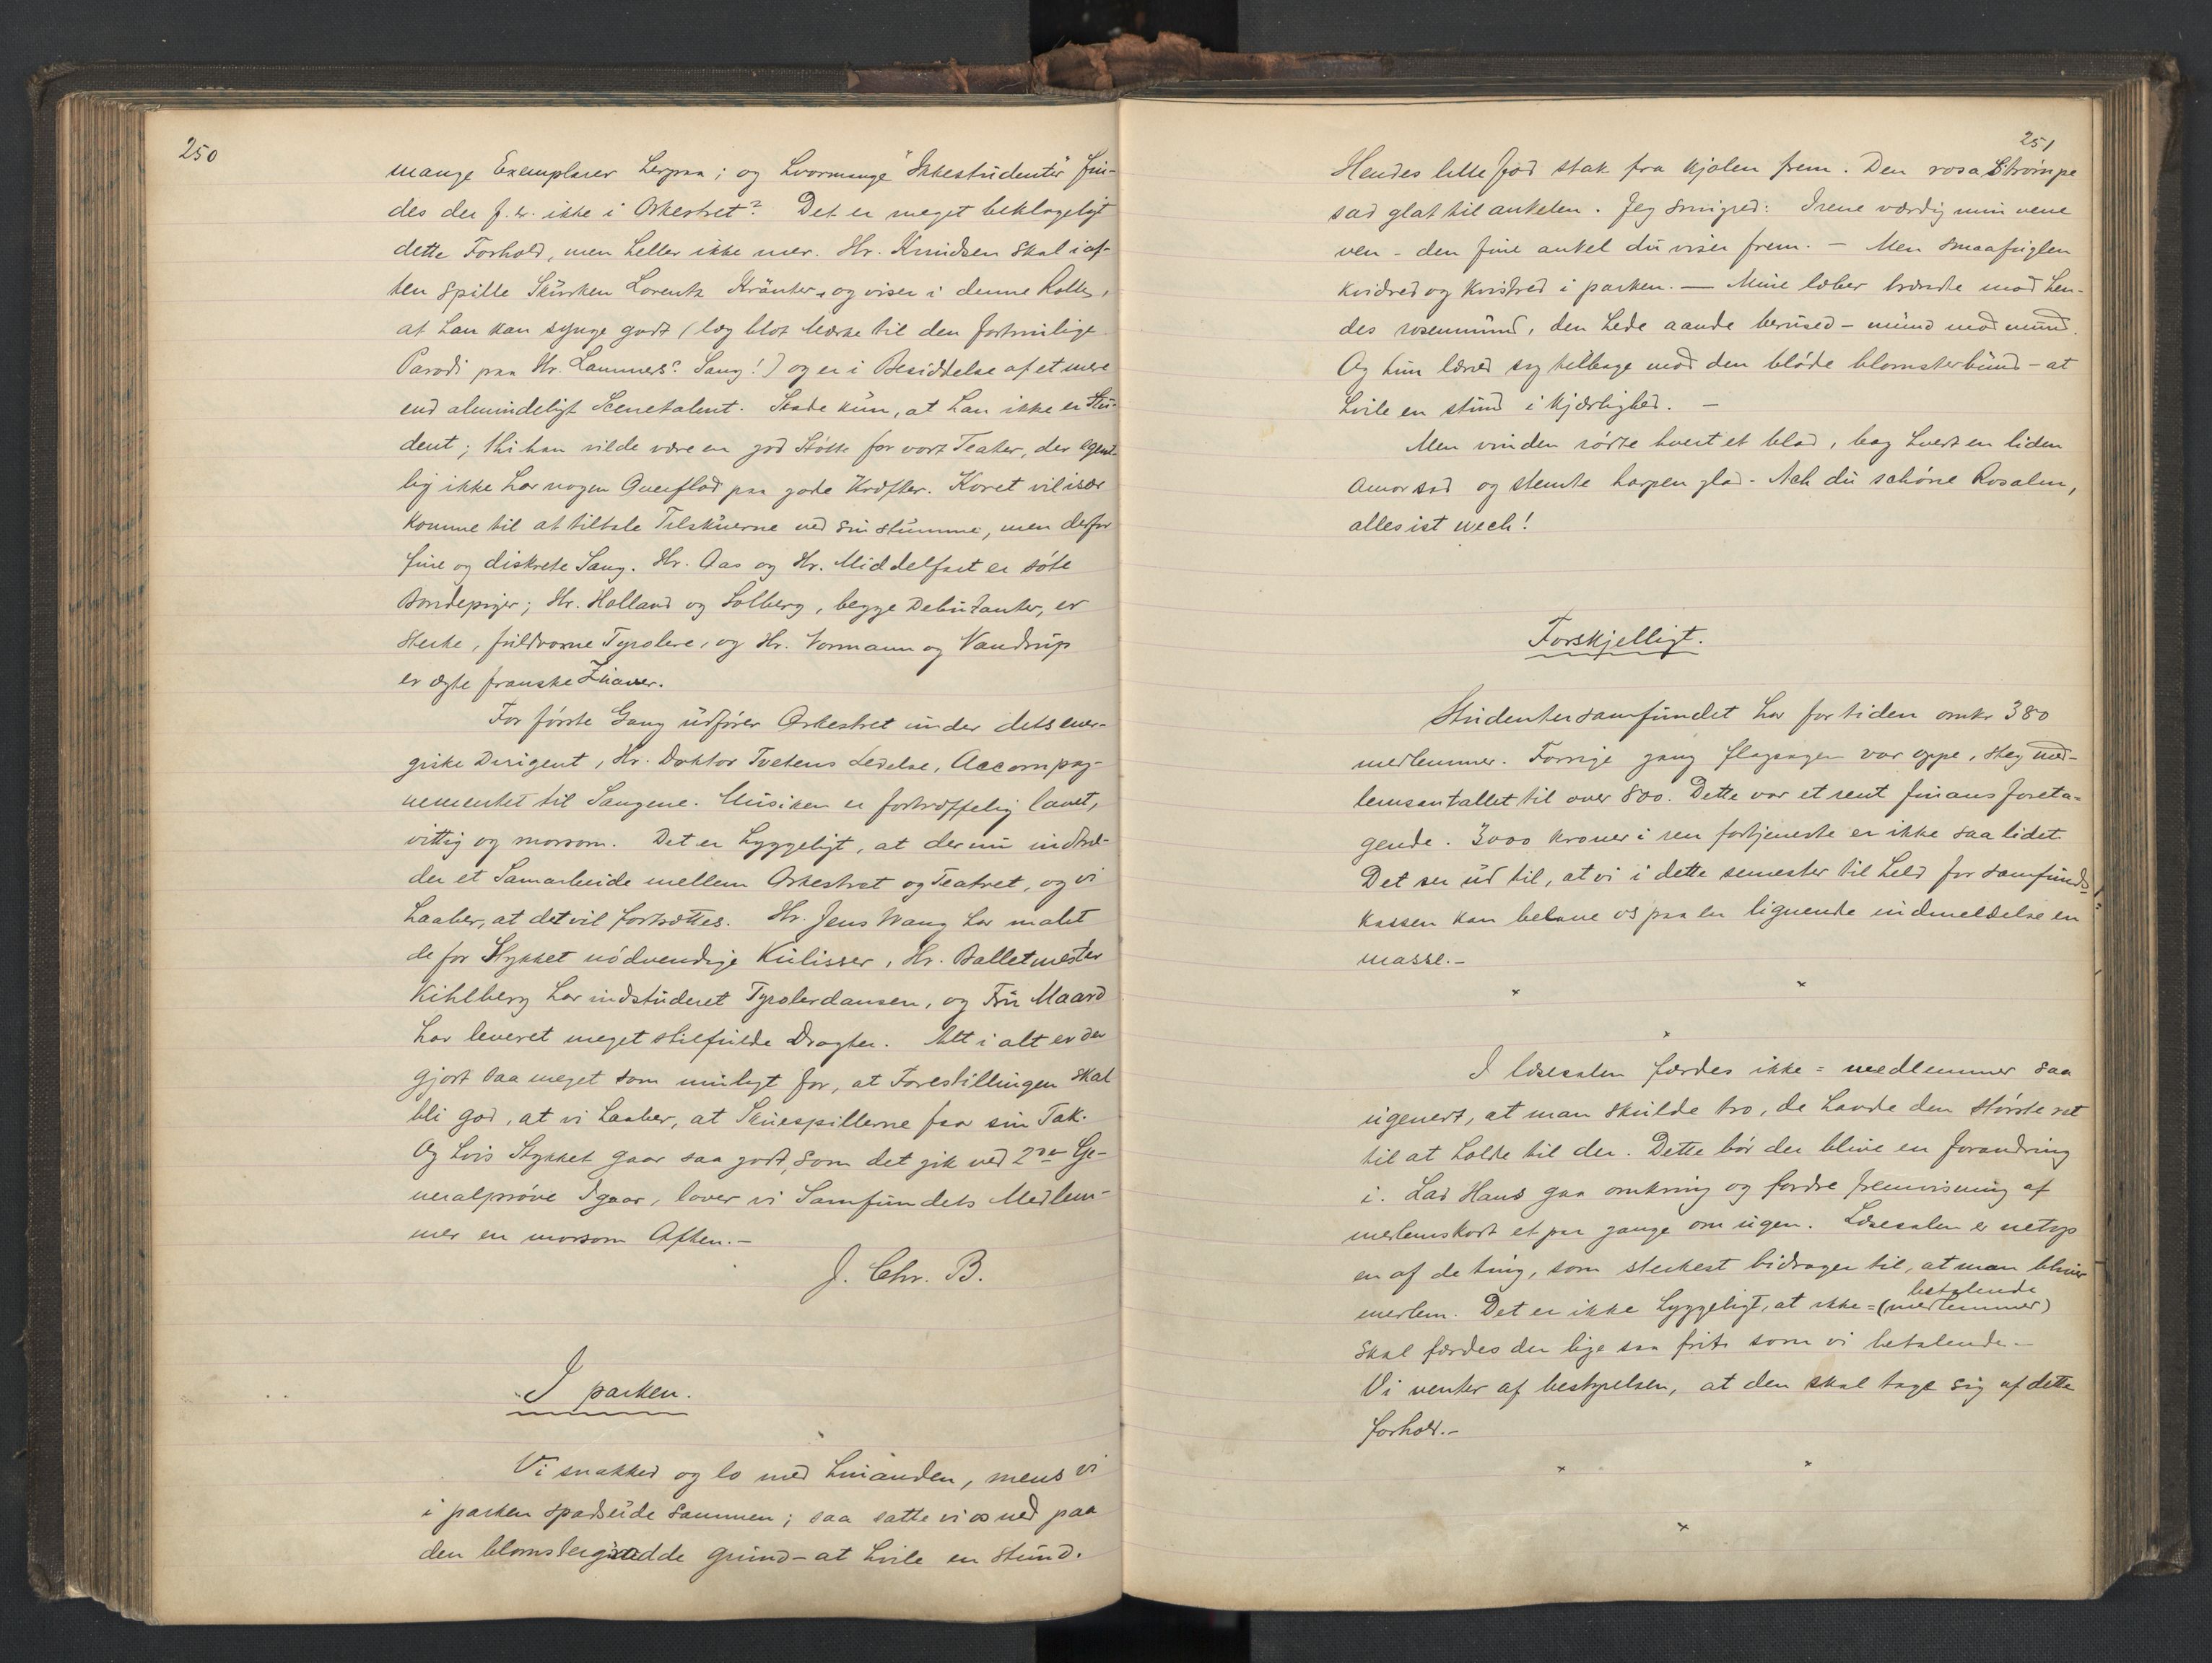 250
mange Exemplarer herpaa; og hvormange "Ikkestudenter" fin-
des der f. ex. ikke i Orkestret? Det er meget beklageligt
dette Forhold, men heller ikke mer. Hr. Knudsen skal iaf-
ten spille Skurken Lorentz Kränter, og viser i denne Rolle,
at han kan synge godt (læg blot Mærke til den fortrinlige
Parodi paa Hr. Lammers' Sang!) og er i Besiddelse af et mere
end almindeligt Scenetalent. Skade kun, at han ikke er Stu-
dent; thi han vilde være en god Støtte for vort Teater, der egent-
lig ikke har nogen Overflod paa gode Kræfter. Koret vil især
komme til at tiltale Tilskuerne ved sin stumme, men derfor
fine og diskrete Sang. Hr. Aas og Hr. Middelfart er søte
Bondepiger; Hr. Holland og Solberg, begge Debutanter, er
sterke, fuldvorne Tyrolere, og Hr. Vormann og Vandrup
er ægte franske Zuaver.
For første Gang udfører Orkestret under dets ener-
giske Dirigent, Hr. Doktor Tvetens Ledelse, Accompag-
nementet til Sangene. Musiken er fortræffelig lavet,
vittig og morsom. Det er hyggeligt, at der nu indtræ-
der et Samarbeide mellem Orkestret og Teatret, og vi
haaber, at det vil fortsættes. Hr. Jens Wang har malet
de for Stykket nødvendige Kulisser, Hr. Balletmester
Kihlberg har indstuderet Tyrolerdansen, og Fru Maard
har leveret meget stilfulde Dragter. Alt i alt er der
gjort saa meget som muligt for, at Forestillingen skal
bli god, at vi haaber, at Skuespillerne faar sin Tak.
Og hvis Stykket gaar saa godt, som det gik ved 2den Ge-
neralprøve Igaar, lover vi Samfundets Medlem-
mer en morsom Aften.-
J. Chr. B.
I parken.
Vi snakked og lo med hinanden, mens vi
i parken spadserede sammen; saa satte vi os ned paa
den blomstergrodde grund - at hvile en stund.
251
Hendes lille fod stak fra kjolen frem. Den rosa Strømpe
sad glat til ankelen. Jeg smigred: Irene værdig min vene
ven - den fine ankel du viser frem. - Men smaafuglen
kvidred og kvistred i parken. - Mine læber brændte mod hen-
des rosenmund, den hede aande berused - mund mod mund.
Og hun læned sig tilbage mod den bløde blomsterbund - at
hvile en stund i kjærlighed. -
Men vinden rørte hvert et blad, bag hvert en liden
Amor sad og stemte harpen glad - Ach du schöne Rosalen,
alles ist wech!
Forskjelligt.
Studentersamfundet har for tiden omkr 380
medlemmer. Forrige gang flagsagen var oppe, steg med-
lemsantallet til over 800. Dette var et rent finansforeta-
gende. 3000 kroner i ren fortjeneste er ikke saa lidet.
Det ser ud til, at vi i dette semester til held for samfunds-
kassen kan belave os paa en lignende indmeldelse en
masse.-
I læsesalen færdes ikke=medlemmer saa
ugenert, at man skulde tro, de havde den største ret
til at holde til der. Dette bør der blive en forandring
i. Lad Hans gaa omkring og fordre fremvisning af
medlemskort et par gange om ugen. Læsesalen er netop
en af de ting, som sterkest bidrager til, at man bliver
betalende
medlem. Det er ikke hyggeligt, at ikke=(medlemmer)
skal færdes der lige saa frit som vi betalende.-
Vi venter af bestyrelsen, at den skal tage sig af dette
forhold.-